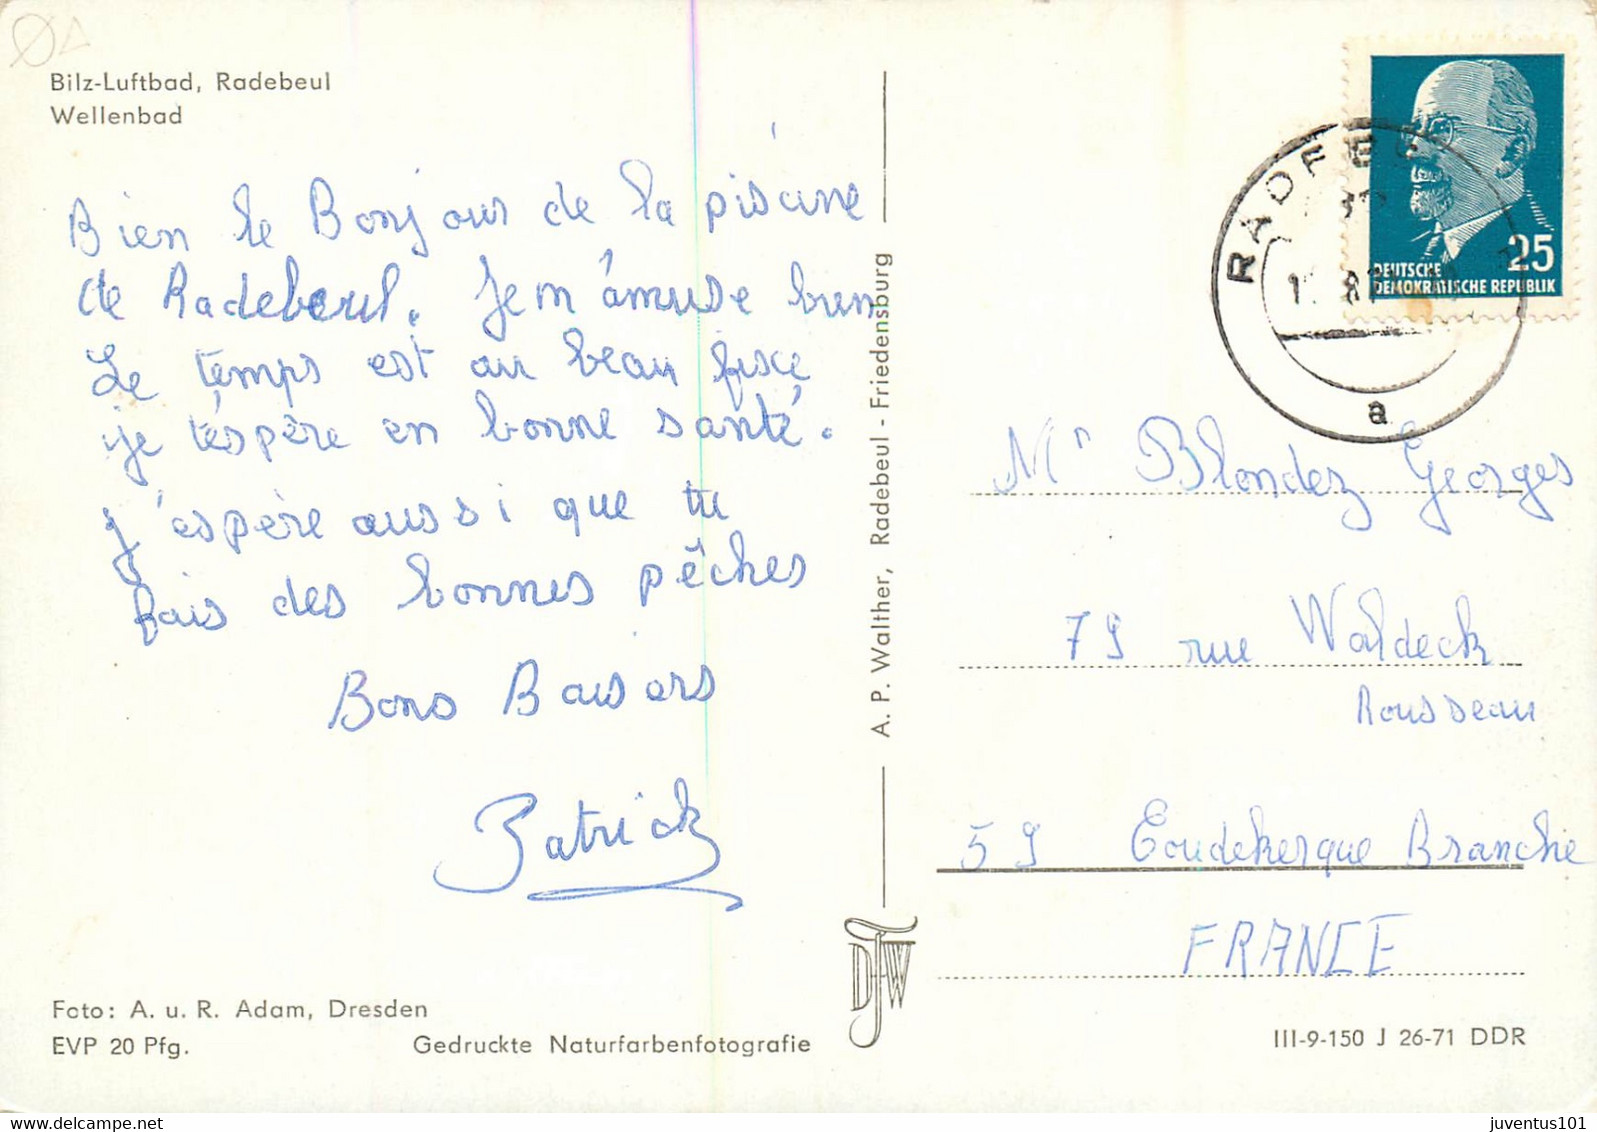 Bilz-Luftbad, Radebeul
Wellenbad
Bien le Bonjour de la piscine
de Radebeul. Je m'amuse bien
Le temps est au beau fixe
je t'espère en bonne santé.
j'espère aussi que tu
fais des bonnes pêches
Bons Baisers
Patrick
Foto: A. u. R. Adam, Dresden
EVP 20 Pfg.
Gedruckte Naturfarbenfotografie
A. P. Walther, Radebeul - Friedensburg
DFW
25
DEUTSCHE
DEMOKRATISCHE REPUBLIK
a
Mr Blondez Georges
79 rue Waldeck
Rousseau
59 Coudekerque Branche
FRANCE
III-9-150 J 26-71 DDR
juventus101